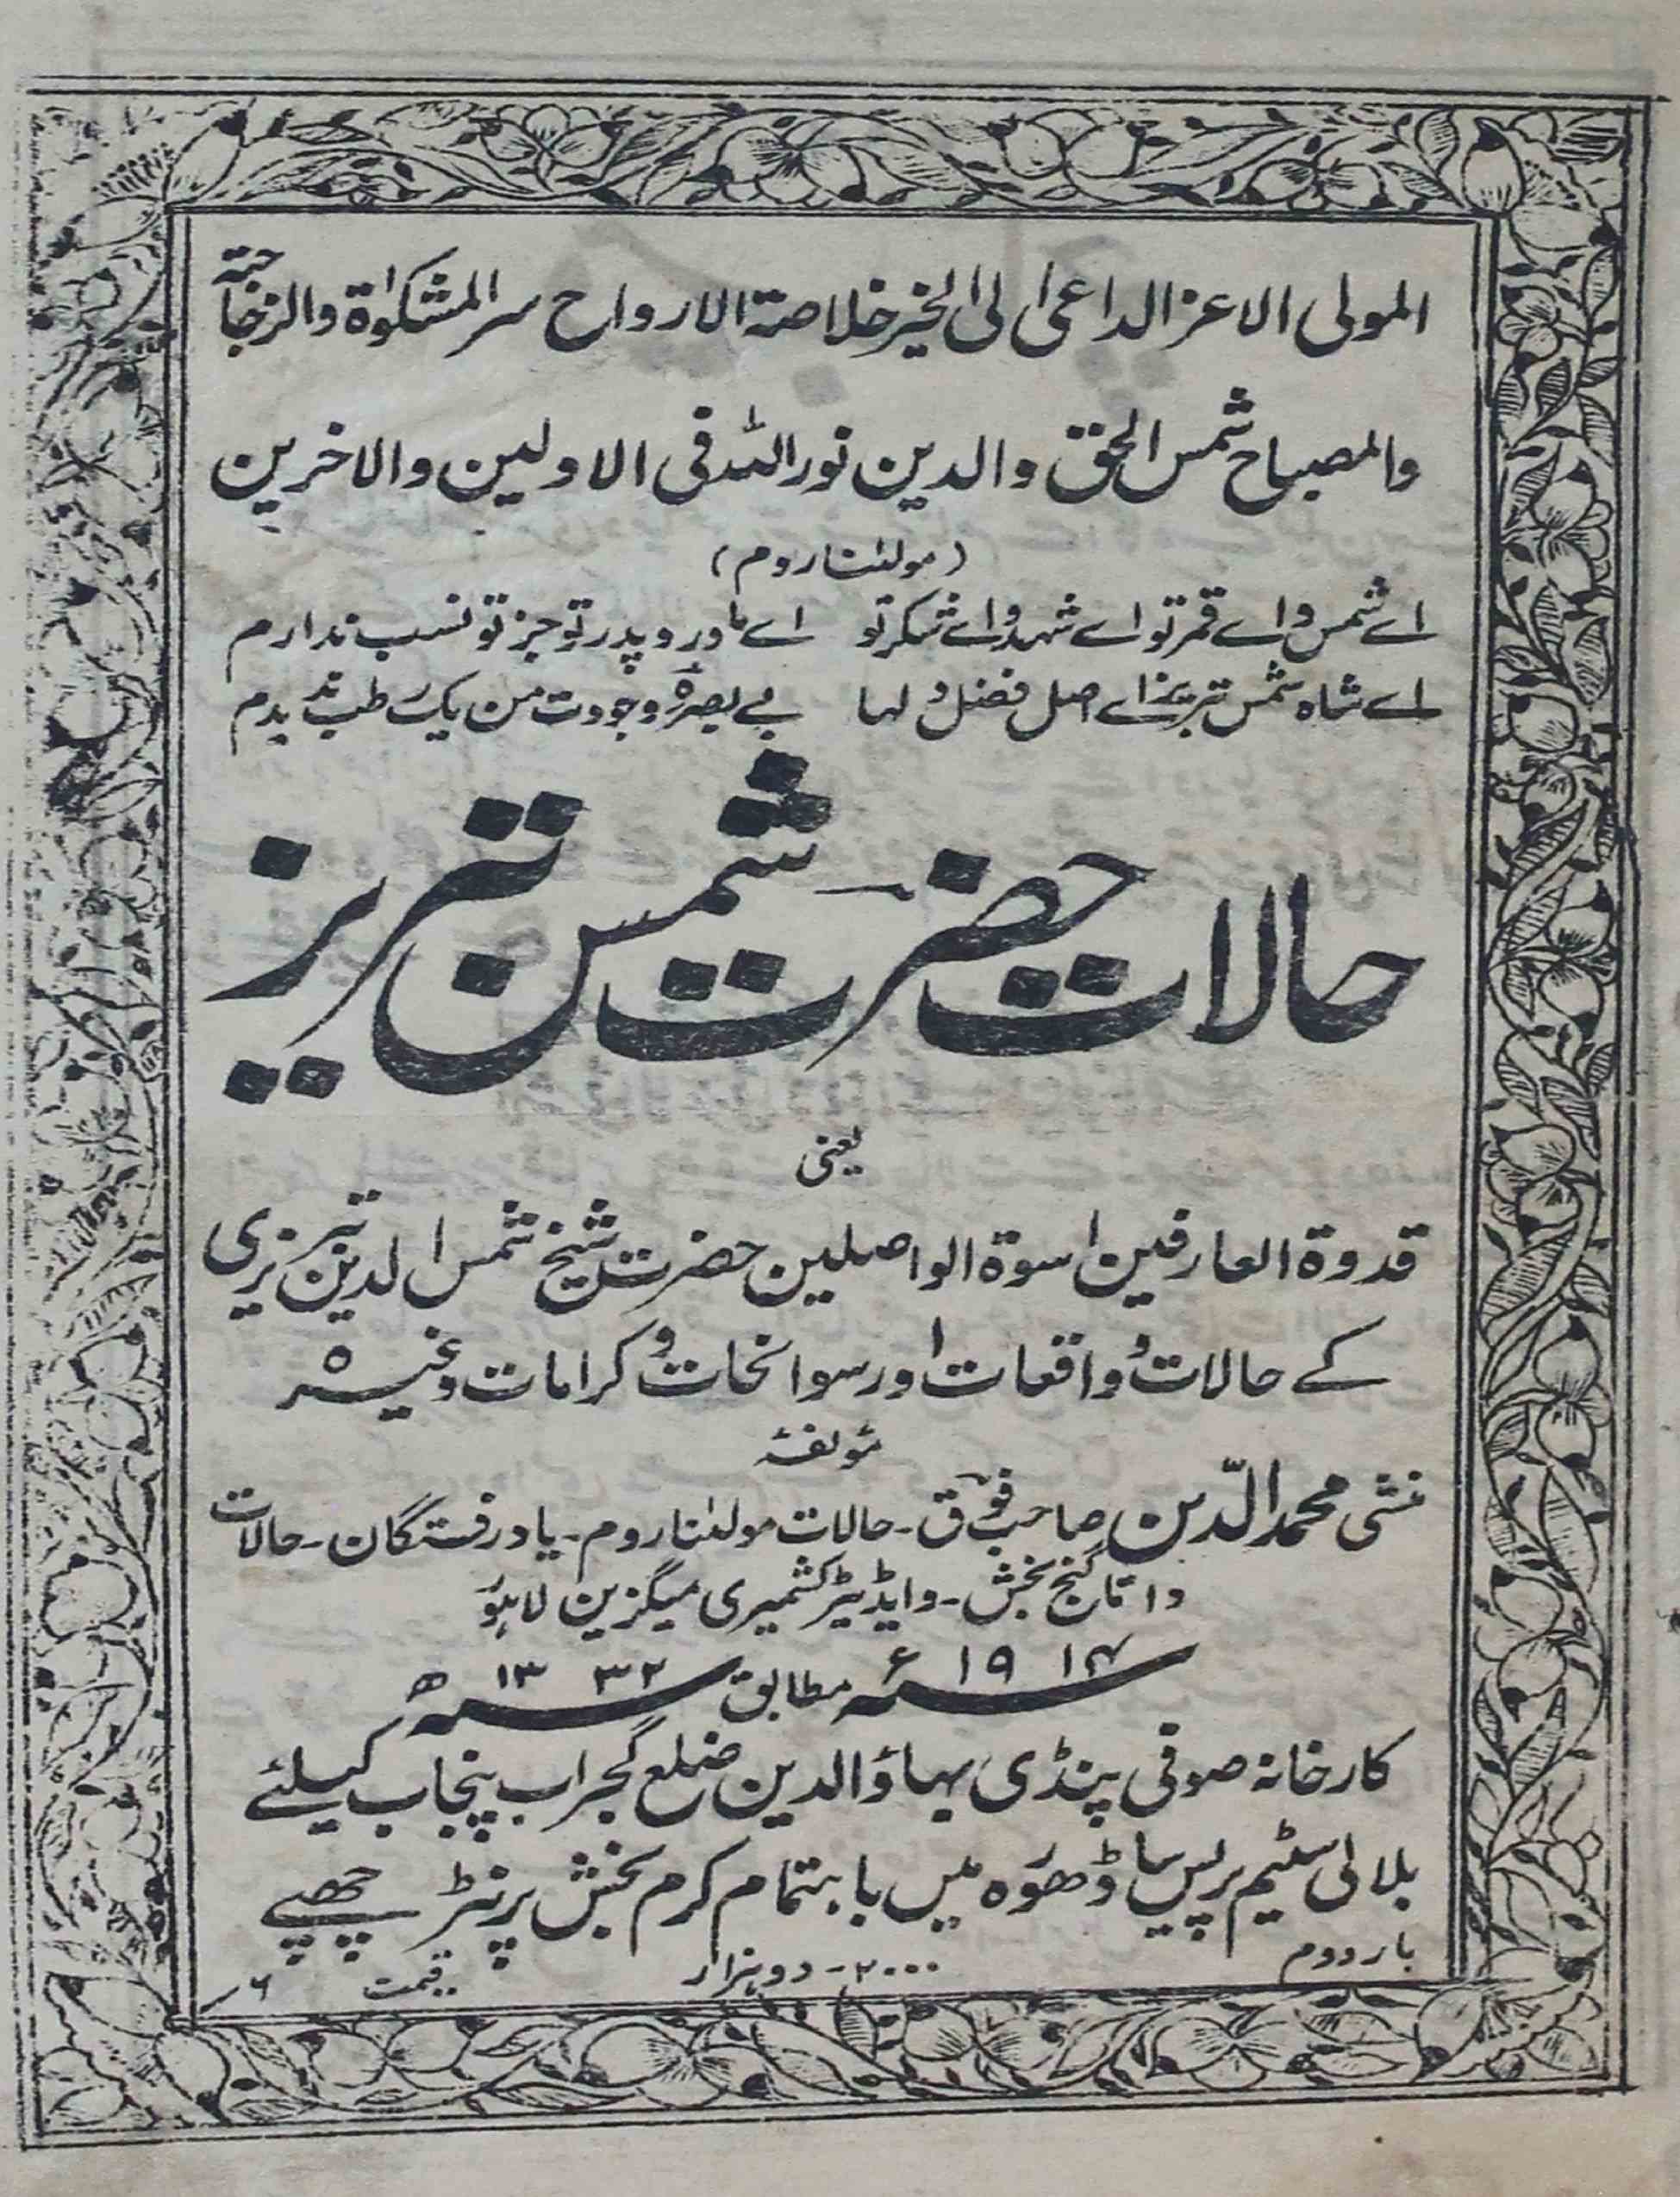 المولی الاعز الداعی الی الخیر خلاصة الارواح سر المشکوٰة والزجاجة
والمصباح شمس الحق والدین نور اللّٰه فی الاولین والاخرین
(مولٰنا روم)
اے شمس و اے قمر تو اے شہد و اے شکر تو اے مادر و پدر تو جز تو نسب ندارم
اے شاہ شمس تبریز اے اصل فضل و لہا بے بصرہ وجودت من یک رطب ندیدم
حالات حضرت شمس تبریز
یعنی
قدوة العارفین اسوة الواصلین حضرت شیخ شمس الدین تبریزی
کے حالات و واقعات اور سوانحات و کرامات وغیرہ
مؤلفہٗ
منشی محمد الدّین صاحب فوق ۔ حالات مولٰنا روم ۔ یاد رفتگان ۔ حالات
داتا گنج بخش ۔ و ایڈیٹر کشمیری میگزین لاہور
۱۹۱۴ء مطابق ۱۳۳۲ھ
کارخانہ صوفی پنڈی بہاؤالدین ضلع گجرات پنجاب کیلئے
بلالی سٹیم پریس ساڈھورہ میں باہتمام کرم بخش پرنٹر چھپے
بار دوم ۲۰۰۰ ۔ دو ہزار قیمت ۶؍